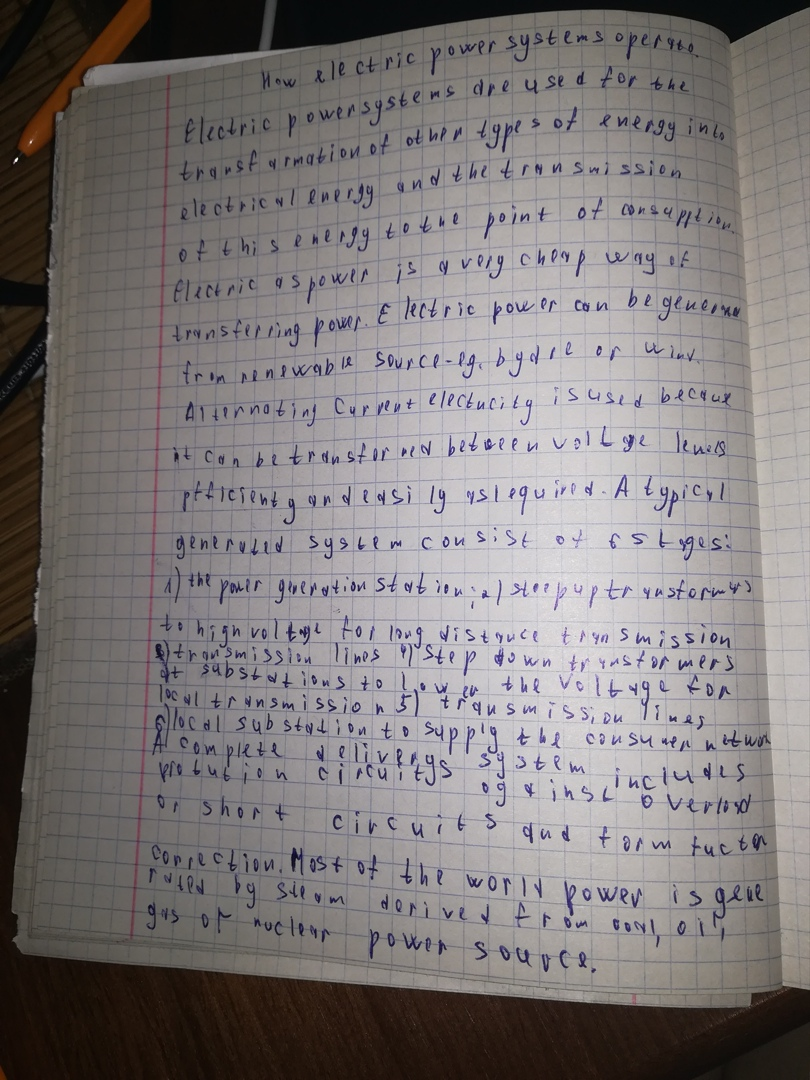 How electric power systems operate.
Electric power systems are used for the
transfarmation of other types of energy into
electrical energy and the transmission
of this energy to the point of consuption.
Electric as power is a very cheap way of
transferring power. Electric power can be genera
from renewable source-eg. or wind.
Alternating Current electricity is used because
it can be transformed between voltage levels
efficienty and easily as required. A typical
generated system consist of 6 stages:
1) the power generation station; 2) step up transformers
to high voltage for long distance transmission
3) transmission lines 4) step down transformers
at substations to lower the voltage for
local transmission 5) transmission lines
6) local substation to supply the consumer networ
A complete delivery system includes
circuitys against overload
or short circuits and form factor
correction. Most of the world power is gene
rated by steam derived from coal, oil,
gas or nuclear power source.